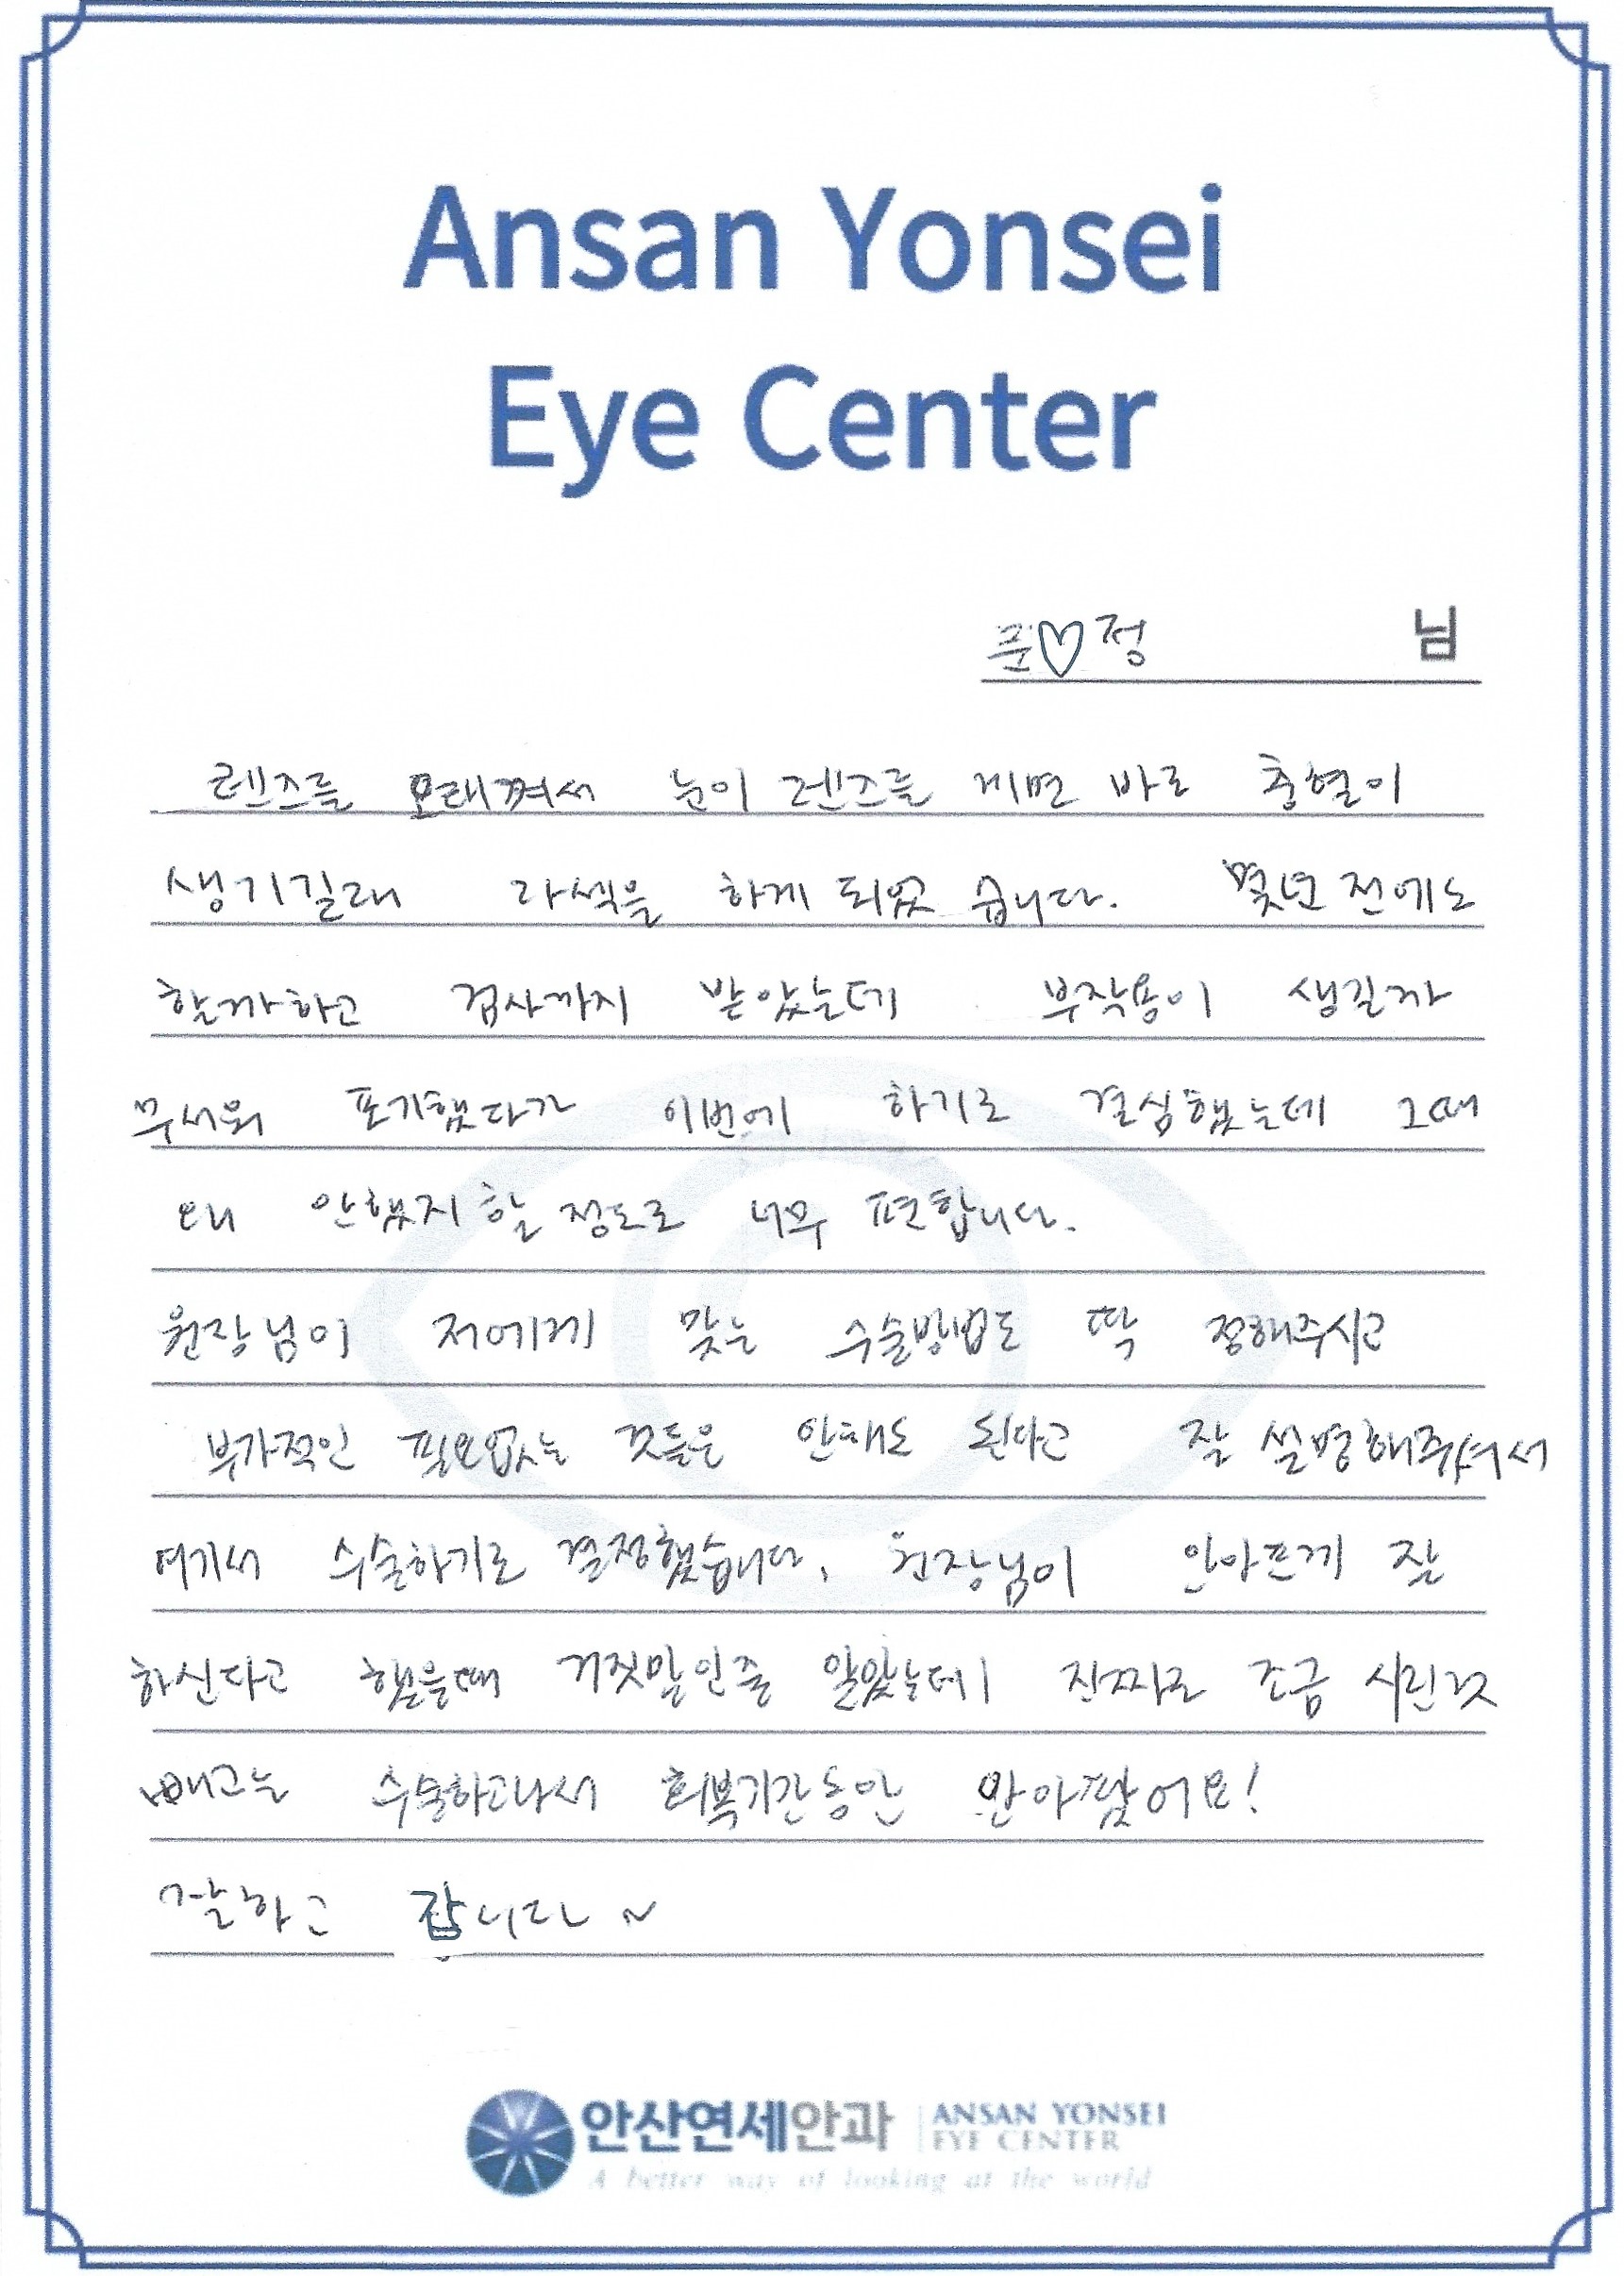 Ansan Yonsei
Eye Center
준♡정 님
렌즈를 오래껴서 눈이 렌즈를 께면 바로 충혈이
생기길래 라섹을 하게 되었 습니다. 몇년 전에도
할까하고 검사까지 받았는데 부작용이 생길까
무서워 포기했다가 이번에 하기로 결심했는데 그때
왜 안했지 할 정도로 너무 편합니다.
원장님이 저에게 맞는 수술방법도 딱 정해주시고
부가적인 필요없는 것들은 안해도 된다고 잘 설명해주셔서
여기서 수술하기로 결정했습니다. 원장님이 안아프게 잘
하신다고 했을때 거짓말인줄 알았는데 진짜로 조금 시린것
빼고는 수술하고나서 회복기간동안 안아팠어요!
잘하고 갑니다~
안산연세안과 ANSAN YONSEI
EYE CENTER
A better way of looking at the world